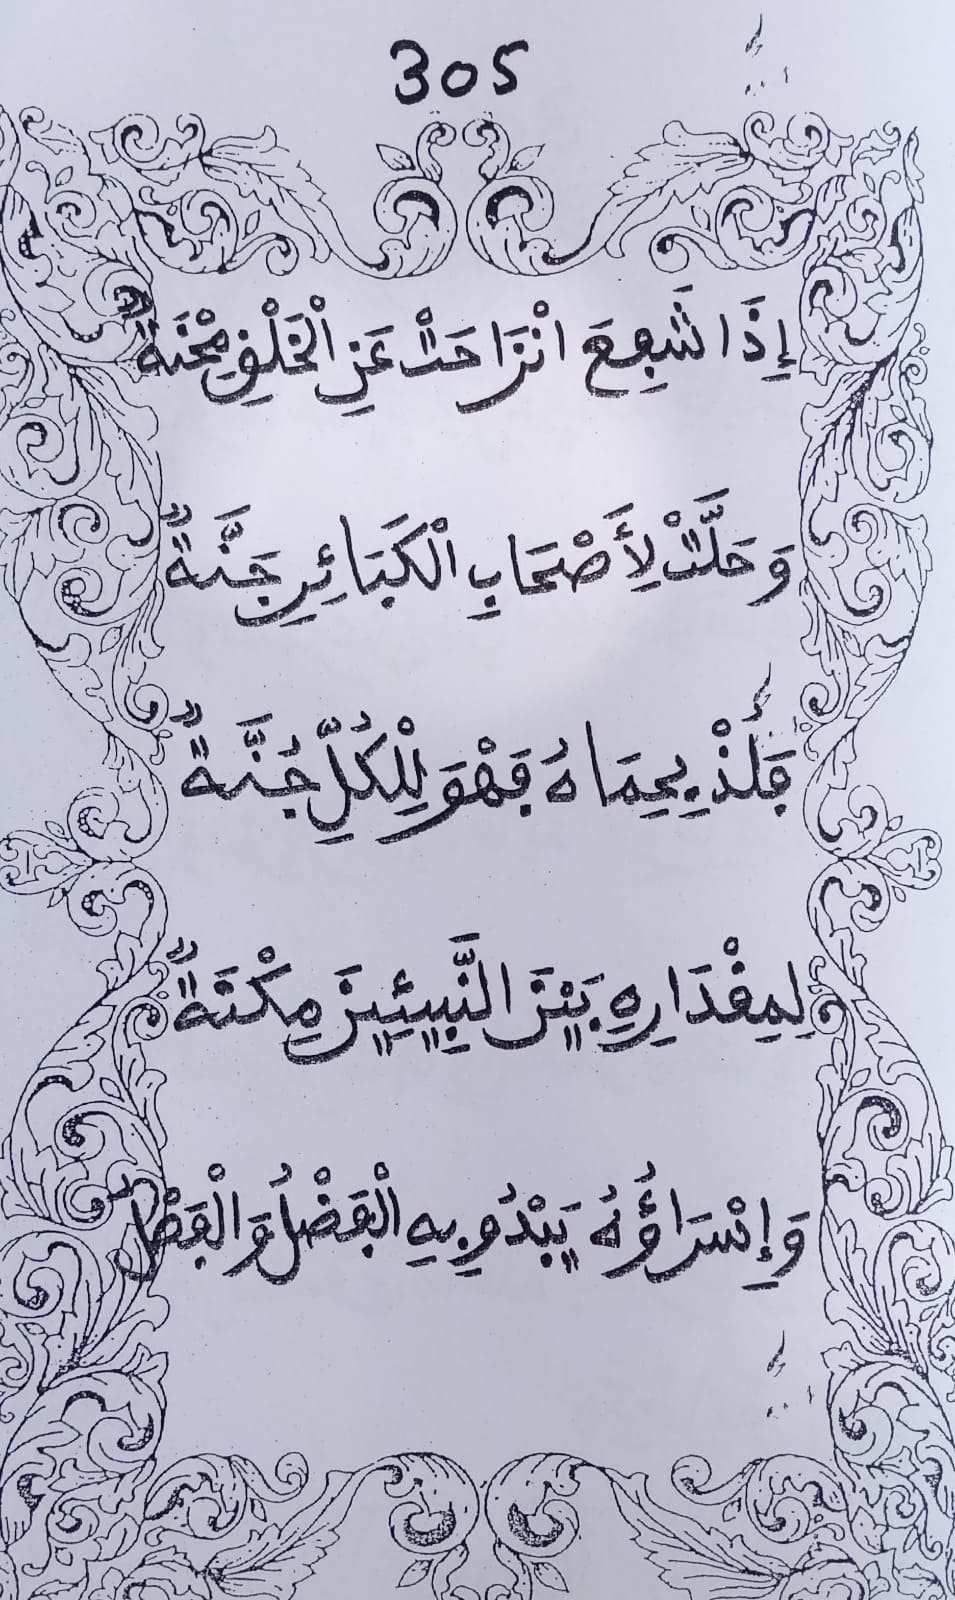 305
إِذَا شَفِعَ انْزَاحَتْ عَنِ الْخَلْقِ مِحْنَةٌ
وَحَلَّتْ لِأَصْحَابِ الْكَبَائِرِ جَنَّةٌ
فَلُذْ بِحِمَاهُ فَهْوَ لِلْكُلِّ جُنَّةٌ
لِمِقْدَارِهِ بَيْنَ النَّبِيئِينَ مِكْنَةٌ
وَإِسْرَاؤُهُ يَبْدُو بِهِ الْفَضْلُ وَالْفَصْلُ